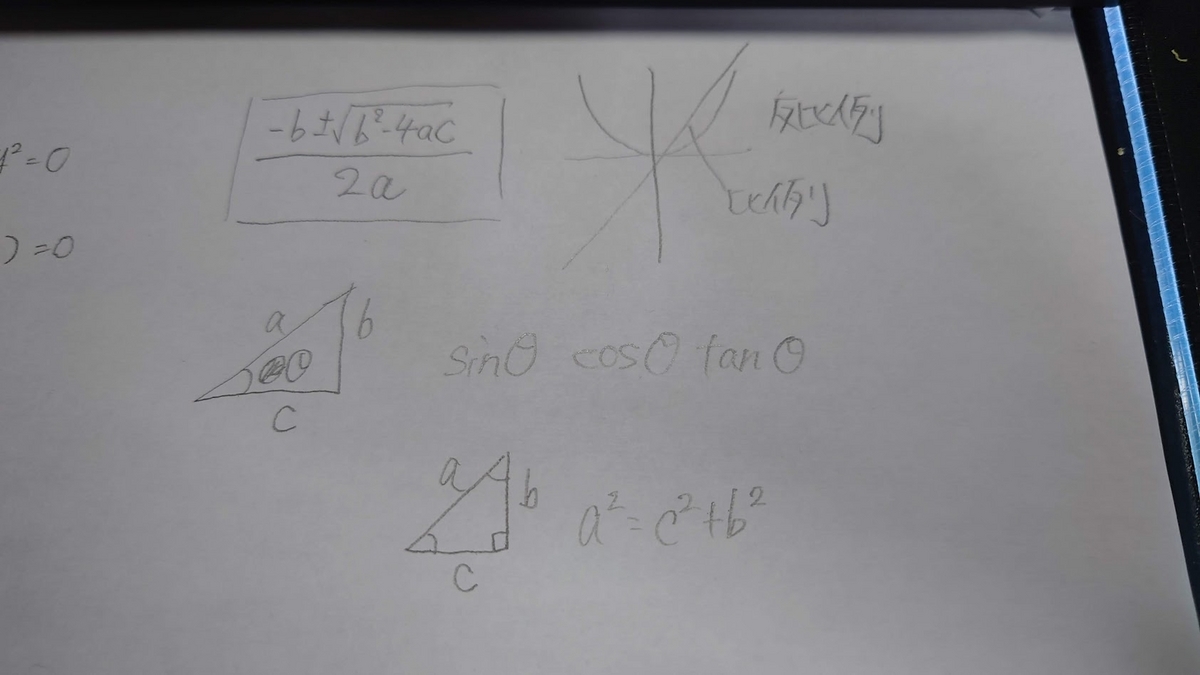 y²=0
) =0
-b±√b²-4ac
2a
反比例
比例
a
b
θ
c
sinθ cosθ tanθ
a
b
c
a²=c²+b²